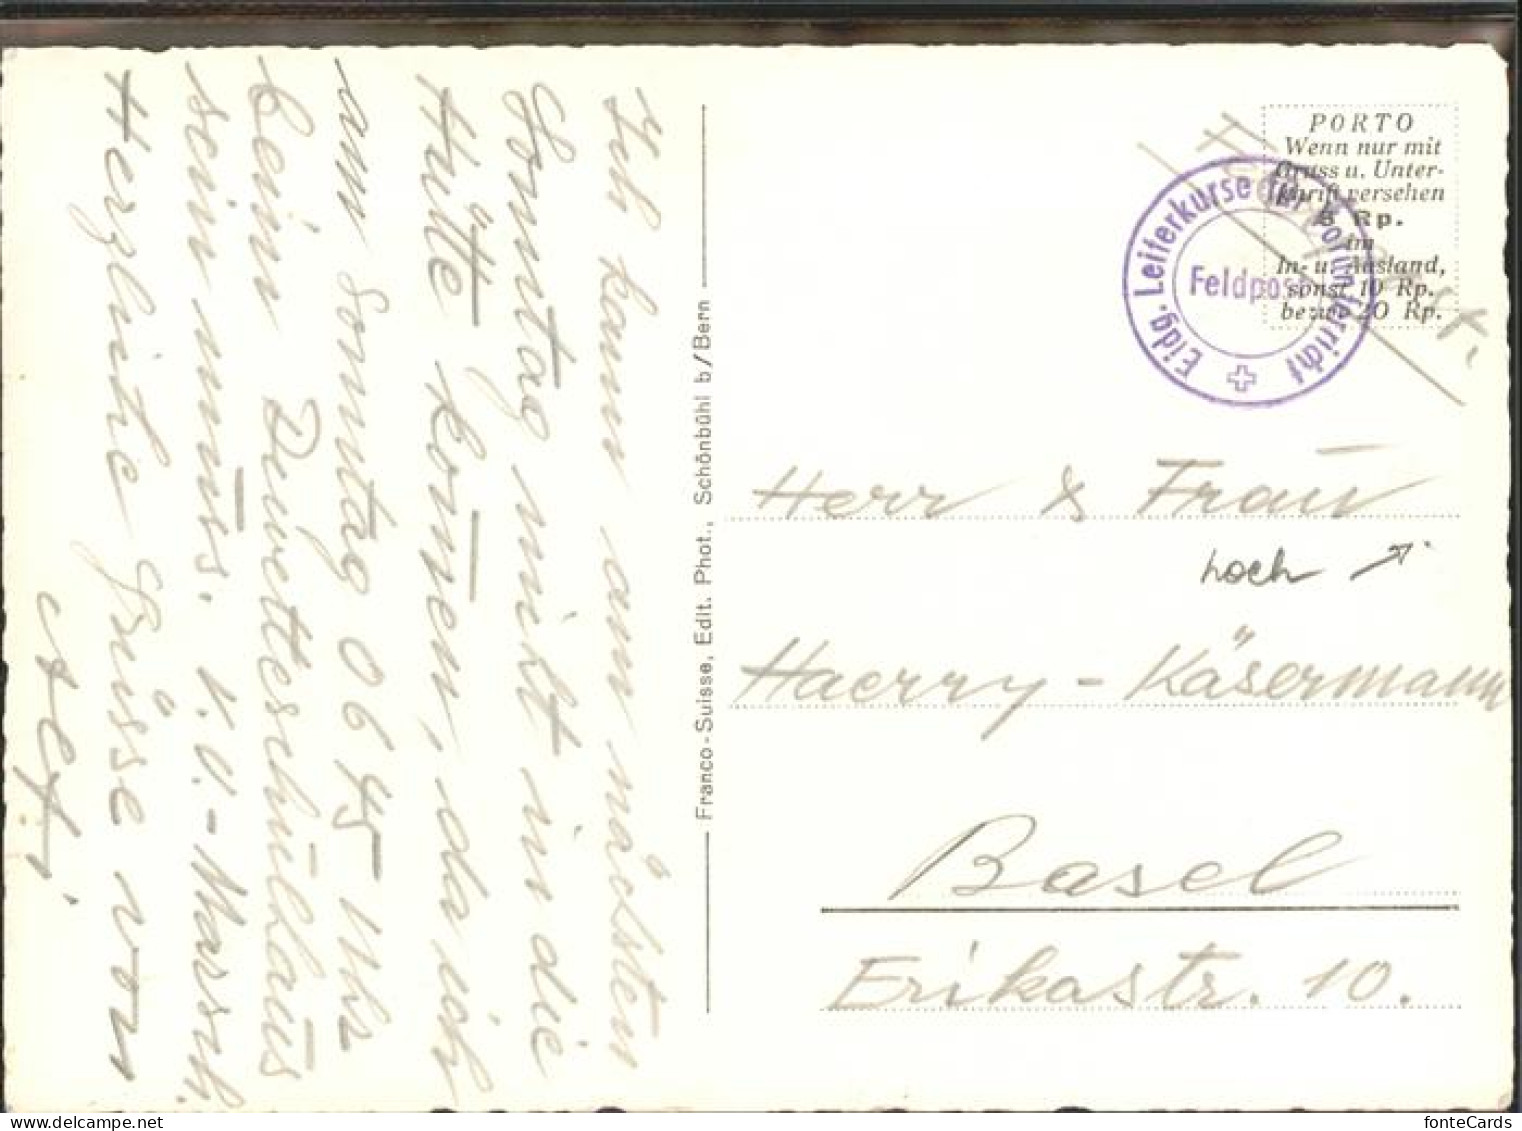 Ich kann am nächsten
Sonntag nicht in die
Hütte kom̄en, da ich
am Sonntag 0645 Uhr
beim
sein muss. V.U.-Marsch.
Herzliche Grüsse von
Franco-Suisse, Edit. Phot., Schönbühl b/Bern
PORTO
Wenn nur mit
Gruss u. Unter-
schrift versehen
5 Rp.
im
In- u. Ausland,
sonst 10 Rp.
bezw. 20 Rp.
Eidg. Leiterkurse für Vorunterricht
Feldpost
Herr & Frau
hoch
Haerry-Käsermann
Basel
Erikastr. 10.
fonteCards